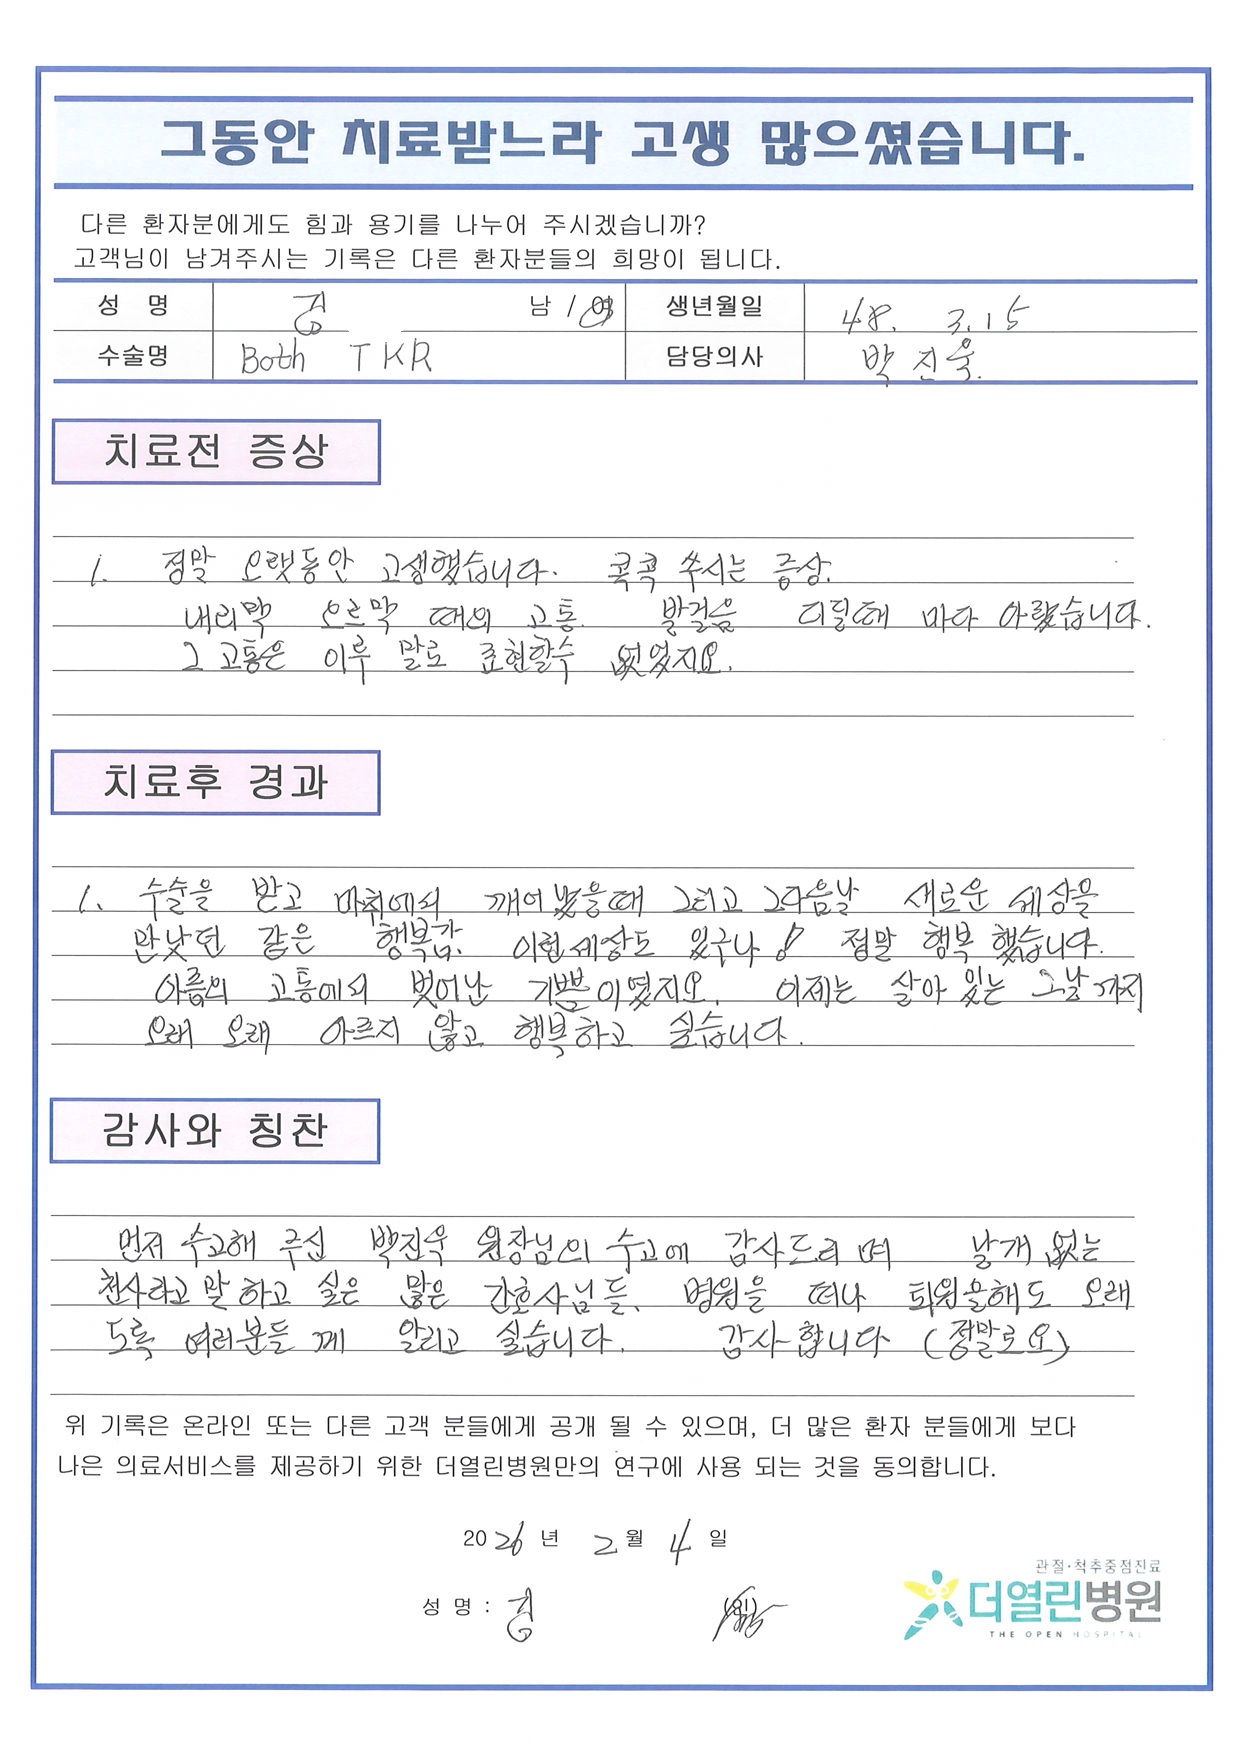 그동안 치료받느라 고생 많으셨습니다.
다른 환자분에게도 힘과 용기를 나누어 주시겠습니까?
고객님이 남겨주시는 기록은 다른 환자분들의 희망이 됩니다.
성 명 김 남 / 여 생년월일 48. 3.15
수술명 Both TKR 담당의사 박진욱.
치료전 증상
1. 정말 오랫동안 고생했습니다. 콕콕 쑤시는 증상.
내리막 오르막 때의 고통. 발걸음 디딜때 마다 아팠습니다.
그 고통은 이루 말로 표현할수 없었지요.
치료후 경과
1. 수술을 받고 마취에서 깨어 났을때 그리고 그다음날 새로운 세상을
만낫던 같은 행복감. 이런세상도 있구나! 정말 행복 했습니다.
아픔의 고통에서 벗어난 기쁨이였지요. 이제는 살아 있는 그날까지
오래 오래 아르지 않고 행복하고 싶습니다.
감사와 칭찬
먼저 수고해 주신 박진욱 원장님의 수고에 감사드리며 날개 없는
천사라고 말하고 싶은 많은 간호사님들. 병원을 떠나 퇴원을해도 오래
도록 여러분들께 알리고 싶습니다. 감사합니다 (정말로요)
위 기록은 온라인 또는 다른 고객 분들에게 공개 될 수 있으며, 더 많은 환자 분들에게 보다
나은 의료서비스를 제공하기 위한 더열린병원만의 연구에 사용 되는 것을 동의합니다.
2026년 2월 4일
성 명 : 김 (인)
관절·척추중점진료
더열린병원
THE OPEN HOSPITAL